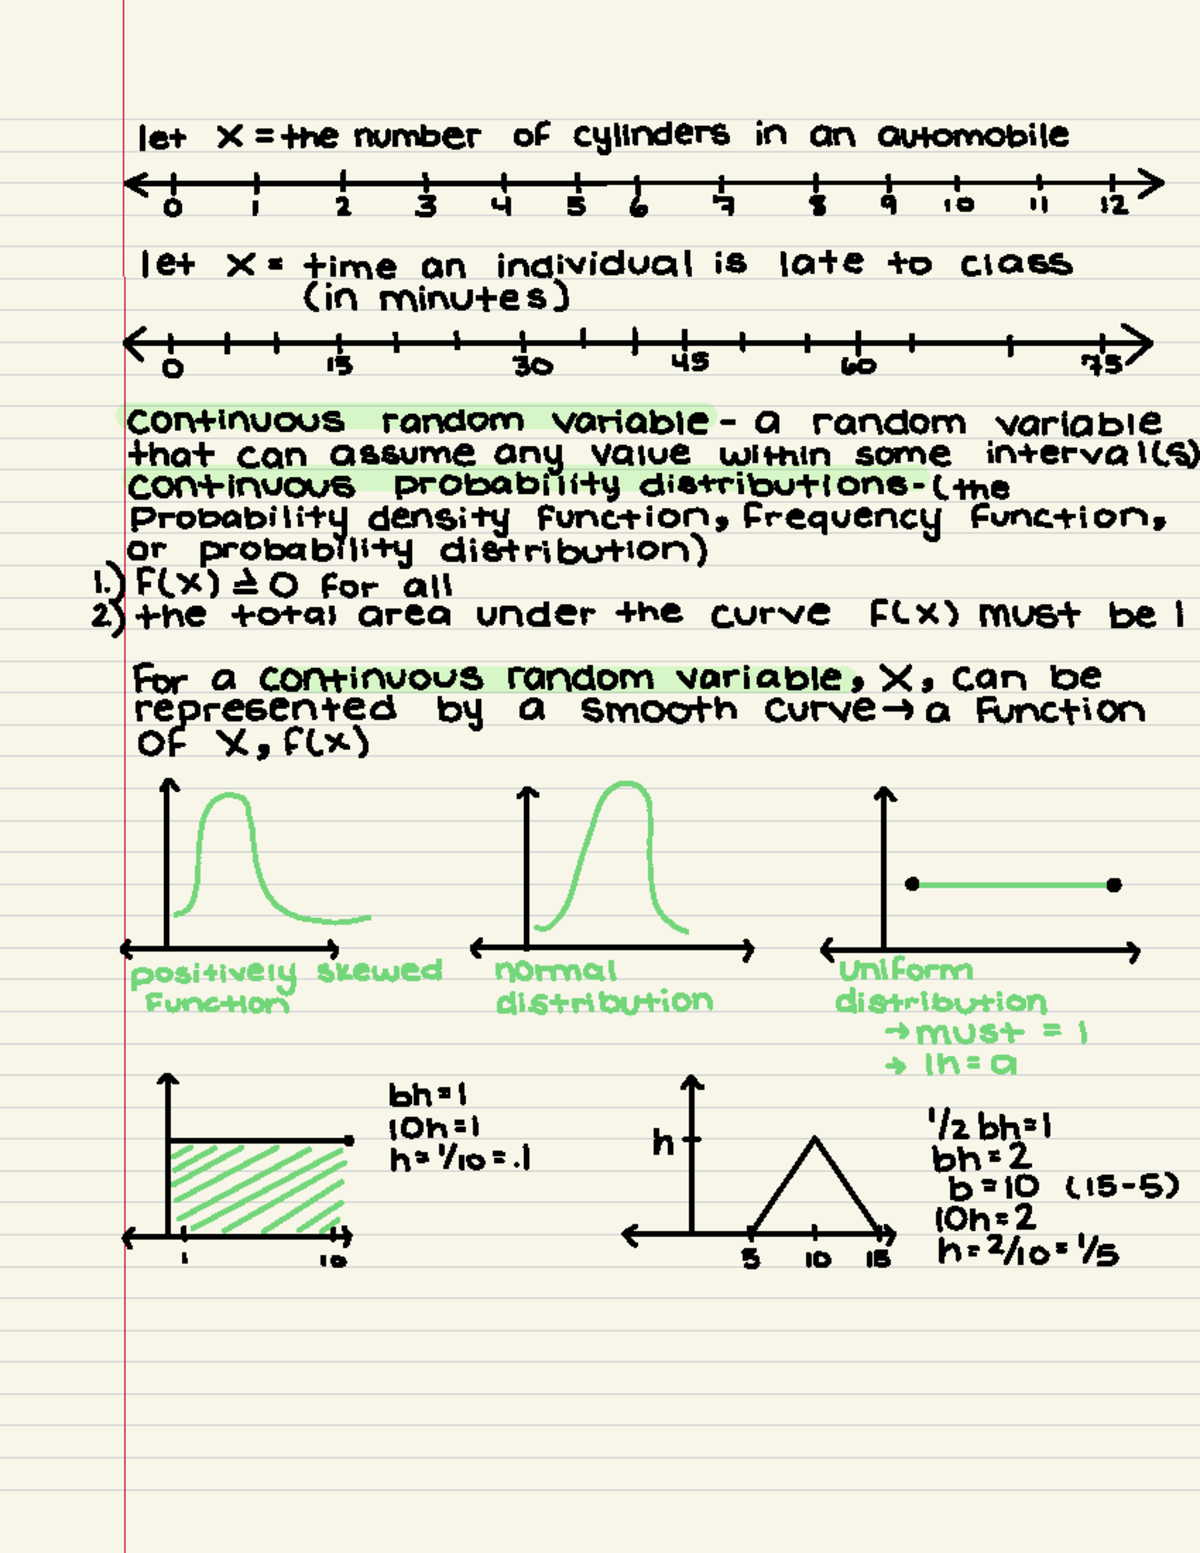 let X = the number of cylinders in an automobile
0 1 2 3 4 5 6 7 8 9 10 11 12
let X = time an individual is late to class
(in minutes)
0 15 30 45 60 75
continuous random variable - a random variable
that can assume any value within some interval(s)
continuous probability distributions - (the
probability density function, frequency function,
or probability distribution)
1.) f(x) ≥ 0 for all
2) the total area under the curve f(x) must be 1
For a continuous random variable, X, can be
represented by a smooth curve → a function
of X, f(x)
positively skewed
function
normal
distribution
uniform
distribution
→ must = 1
→ lh = a
bh = 1
10h = 1
h = 1/10 = .1
1 10
h
5 10 15
1/2 bh = 1
bh = 2
b = 10 (15-5)
10h = 2
h = 2/10 = 1/5